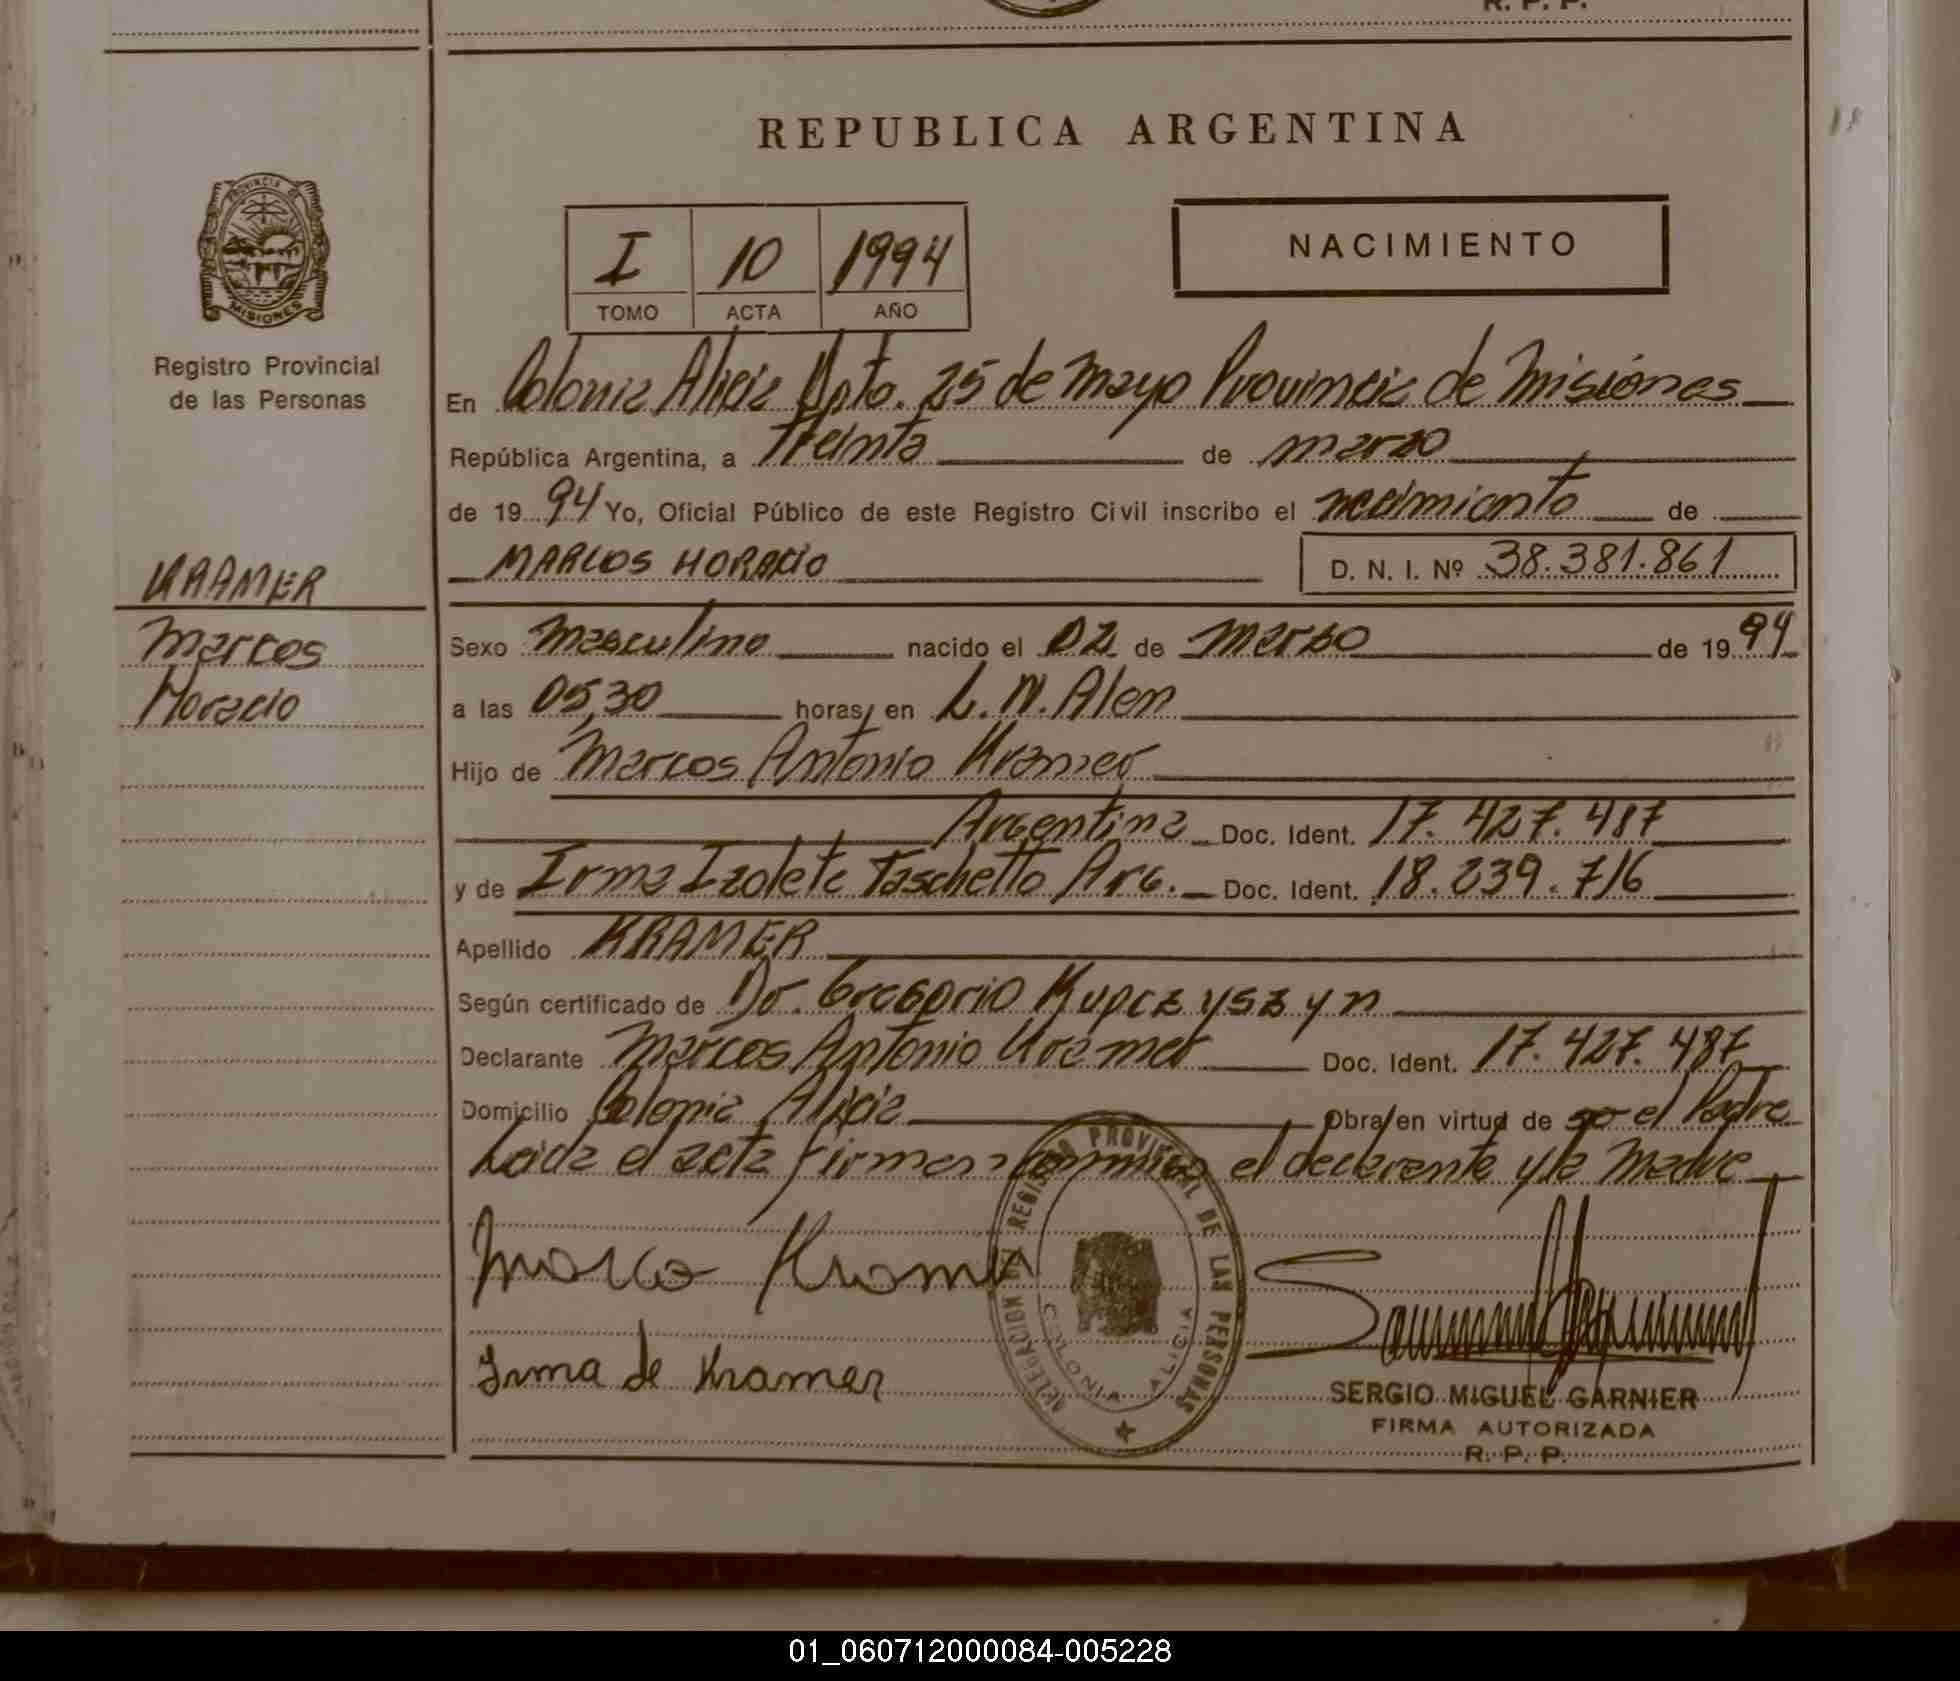 R. P. P.
REPUBLICA ARGENTINA
18
PROVINCIA DE
MISIONES
Registro Provincial
de las Personas
I 10 1994
TOMO ACTA AÑO
NACIMIENTO
En Colonia Alicia Dpto. 25 de Mayo Provincia de Misiones
República Argentina, a Treinta de marzo
de 19 94 Yo, Oficial Público de este Registro Civil inscribo el nacimiento de
MARCOS HORACIO D. N. I. Nº 38.381.861
KRAMER
Marcos
Horacio
Sexo Masculino nacido el 02 de Marzo de 19 94
a las 05,30 horas, en L. N. Alem
Hijo de Marcos Antonio Kramer
Argentina Doc. Ident. 17.427.487
y de Irma Izolete Taschetto Arg. Doc. Ident. 18.239.716
Apellido KRAMER
Según certificado de Dr. Gregorio Kupczyszyn
Declarante Marcos Antonio Kramer Doc. Ident. 17.427.487
Domicilio Colonia Alicia Obra en virtud de so el Padre
Leida el acta firman conmigo el declarante y la Madre
Marco Kramer
Irma de Kramer
DELEGACION DEL REGISTRO PROVINCIAL DE LAS PERSONAS
COLONIA ALICIA
SERGIO MIGUEL GARNIER
FIRMA AUTORIZADA
R. P. P.
01_060712000084-005228